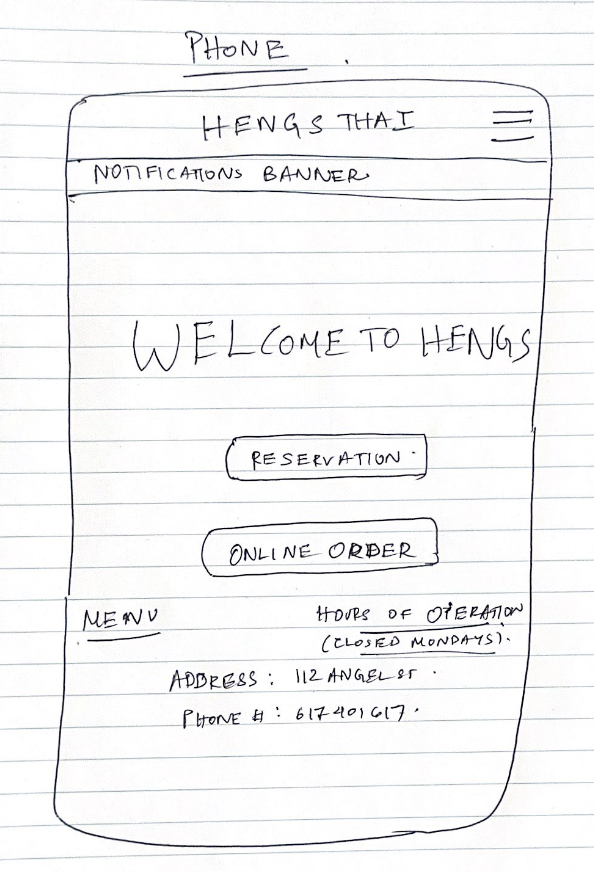 PHONE
HENGS THAI
NOTIFICATIONS BANNER
WELCOME TO HENGS
RESERVATION
ONLINE ORDER
MENU
HOURS OF OPERATION
(CLOSED MONDAYS).
ADDRESS: 112 ANGEL ST.
PHONE #: 617401617.